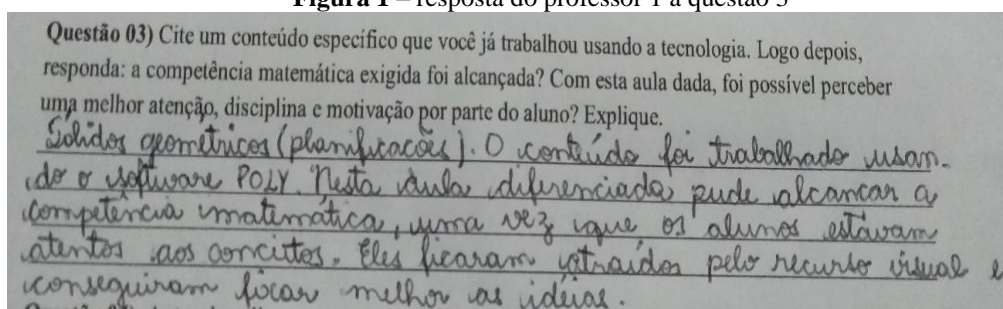 Figura 1 – resposta do professor 1 à questão 3
Questão 03) Cite um conteúdo específico que você já trabalhou usando a tecnologia. Logo depois,
responda: a competência matemática exigida foi alcançada? Com esta aula dada, foi possível perceber
uma melhor atenção, disciplina e motivação por parte do aluno? Explique.
Sólidos geométricos (planificações). O conteúdo foi trabalhado usan-
do o software POLY. Nesta aula diferenciada pude alcançar a
competência matemática, uma vez que os alunos estavam
atentos aos conceitos. Eles ficaram atraídos pelo recurso visual e
conseguiram focar melhor as idéias.